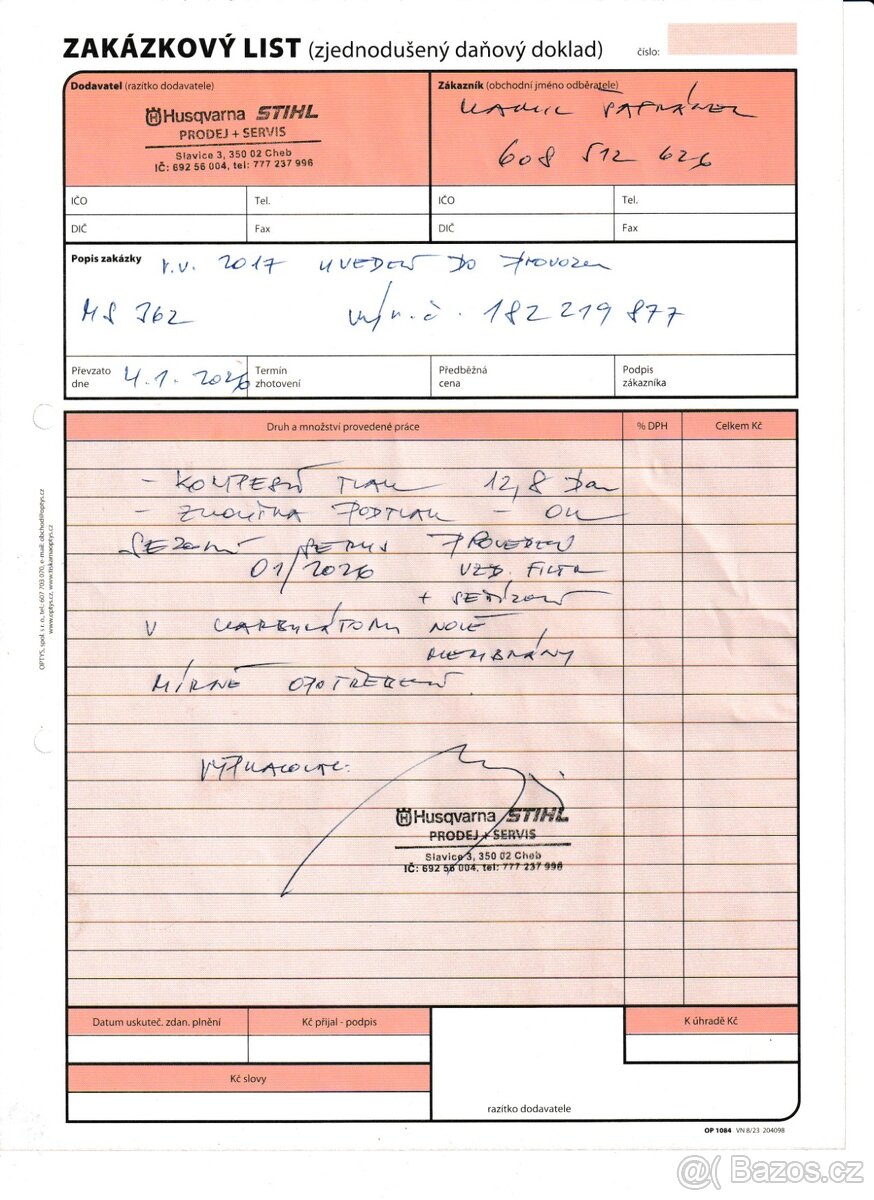 ZAKÁZKOVÝ LIST (zjednodušený daňový doklad) číslo:
Dodavatel (razítko dodavatele)
Husqvarna STIHL
PRODEJ + SERVIS
Slavice 3, 350 02 Cheb
IČ: 692 56 004, tel: 777 237 996
Zákazník (obchodní jméno odběratele)
608 512 626
IČO Tel. IČO Tel.
DIČ Fax DIČ Fax
Popis zakázky r.v. 2017 UVEDENÍ DO PROVOZU
MS 362 výr. č. 182 219 877
Převzato dne 4.1. 2026 Termín zhotovení Předběžná cena Podpis zákazníka
Druh a množství provedené práce % DPH Celkem Kč
- KOMPESNÍ TLAK 12,8 Bar
- ZKOUŠKA PODTLAK - OK
SEZONÍ SERVIS PROVEDEN
01/2026 VZD. FILTR
+ SEŘÍZENÍ
V KARBURÁTORU NOVÉ
MEMBRÁNY
MÍRNĚ OPOTŘEBENÍ.
VYPRACOVAL:
Husqvarna STIHL
PRODEJ + SERVIS
Slavice 3, 350 02 Cheb
IČ: 692 56 004, tel: 777 237 996
OPTYS, spol. s r. o., tel.: 607 703 070, e-mail: obchod@optys.cz
www.optys.cz, www.tiskarnaoptys.cz
Datum uskuteč. zdan. plnění Kč přijal - podpis K úhradě Kč
Kč slovy
razítko dodavatele
OP 1084 VN 8/23 204098
@( Bazos.cz